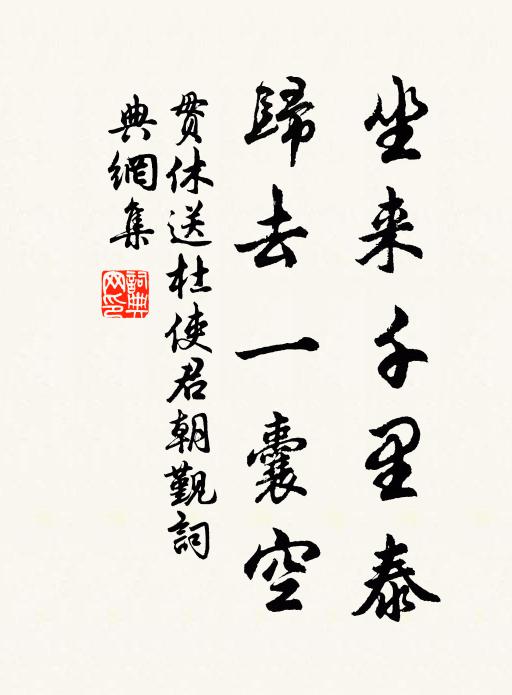 坐来千里泰
歸去一囊空
貫休送杜使君朝觐詞
典網集
詞典
网印